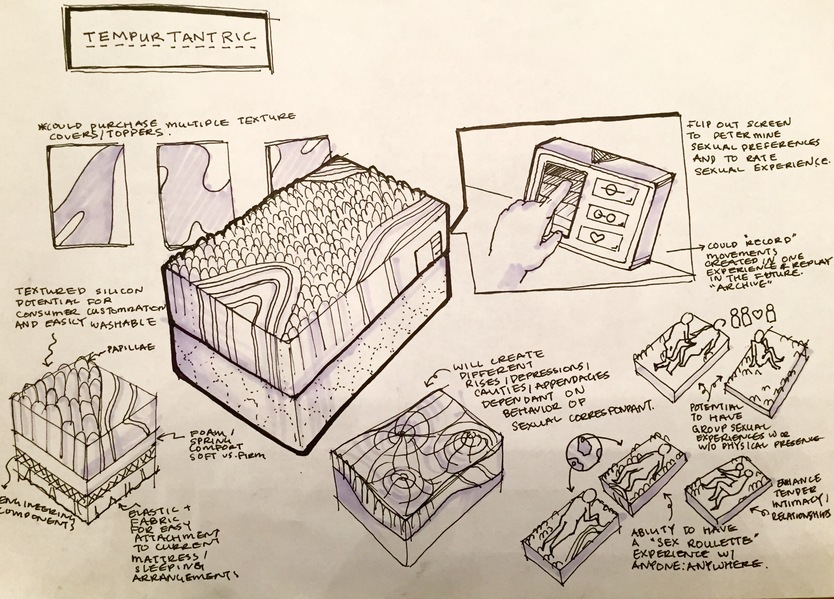 TEMPURTANTRIC
*COULD PURCHASE MULTIPLE TEXTURE
COVERS/TOPPERS.
FLIP OUT SCREEN
TO DETERMINE
SEXUAL PREFERENCES
AND TO RATE
SEXUAL EXPERIENCE.
COULD "RECORD"
MOVEMENTS
CREATED IN ONE
EXPERIENCE & REPLAY
IN THE FUTURE.
"ARCHIVE"
TEXTURED SILICON
POTENTIAL FOR
CONSUMER CUSTOMIZATION
AND EASILY WASHABLE
PAPILLAE
FOAM/
SPRING
COMFORT
SOFT VS. FIRM
ENGINEERING
COMPONENTS
ELASTIC +
FABRIC
FOR EASY
ATTACHMENT
TO CURRENT
MATTRESS/
SLEEPING
ARRANGEMENTS
WILL CREATE
DIFFERENT
RISES/DEPRESSIONS/
CAVITIES/APPENDAGES
DEPENDANT ON
BEHAVIOR OF
SEXUAL CORRESPONDANT.
POTENTIAL
TO HAVE
GROUP SEXUAL
EXPERIENCES W OR
W/O PHYSICAL PRESENCE
ENHANCE
TENDER
INTIMACY/
RELATIONSHIPS
ABILITY TO HAVE
A "SEX ROULETTE"
EXPERIENCE W/
ANYONE: ANYWHERE.